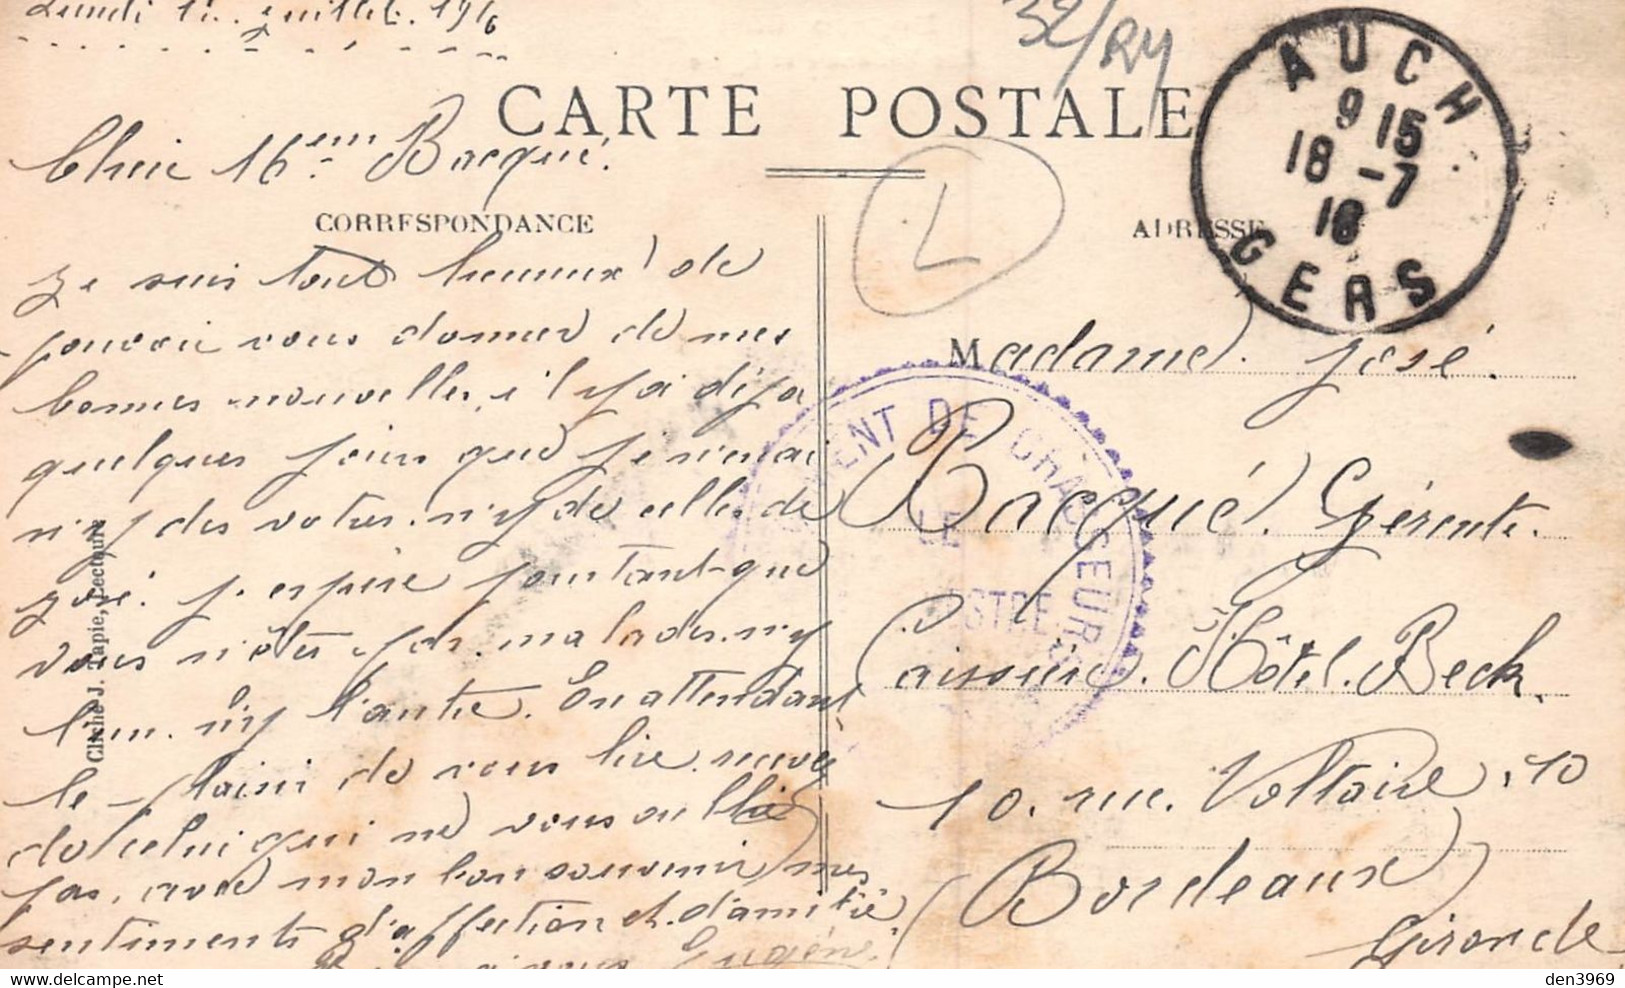 Lundi 17 Juillet 1916
32/RY
CARTE POSTALE
Chère Mme Bacqué.
CORRESPONDANCE
ADRESSE
AUCH
9 15
18 -7
16
GERS
L
Je suis tout heureux de
pouvoir vous donner de mes
bonnes nouvelles, il y a déja
quelques jours que je n'ai
n'y des votres, n'y de celles de
José. J'espère pourtant que
vous n'êtes pas malades, n'y
l'un n'y l'autre. En attendant
le plaisir de vous lire, recevez
de celui qui ne vous oublie
pas, avec mon bon souvenir, mes
sentiments d'affection et d'amitié.
Eugène.
Madame José
Bacqué. Gérente.
Caissière. Hôtel. Beck.
10. rue. Voltaire, 10
Bordeaux
Gironde
MENT DE CHASSEURS
LE
STRE
Cliché J. Tapie, Lectoure
den3969